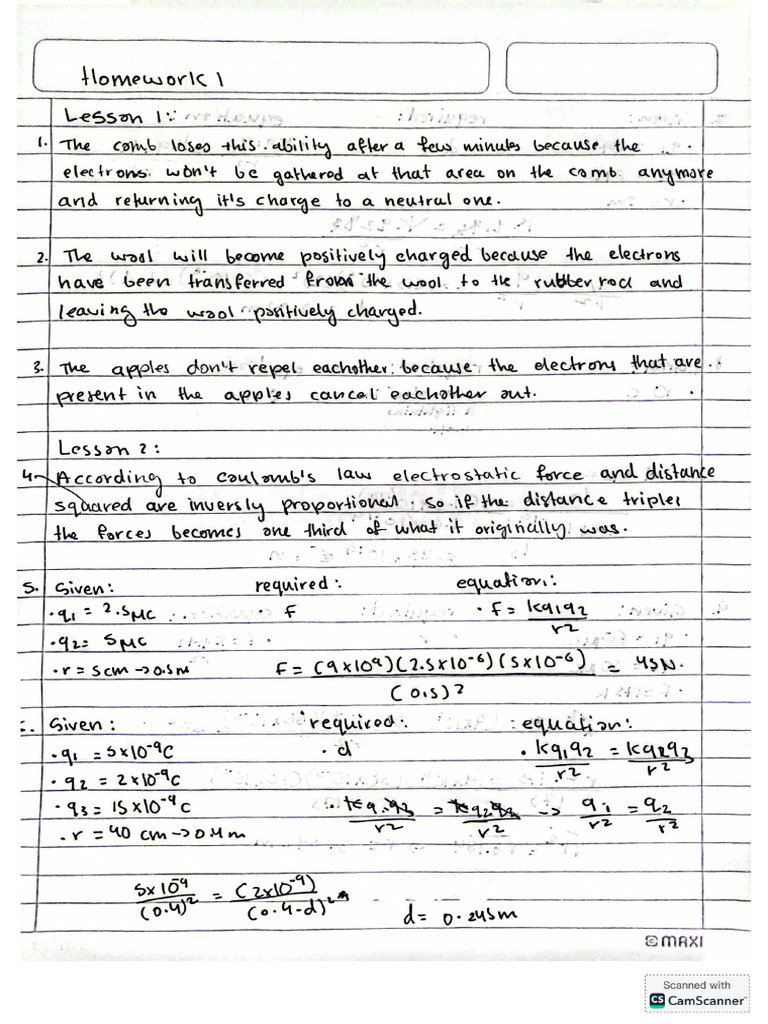 Homework 1
Lesson 1:
1. The comb loses this ability after a few minutes because the
electrons won't be gathered at that area on the comb anymore
and returning it's charge to a neutral one.
2. The wool will become positively charged because the electrons
have been transferred from the wool to the rubber rod and
leaving the wool positively charged.
3. The apples don't repel eachother because the electrons that are
present in the apples cancel eachother out.
Lesson 2:
4- According to coulomb's law electrostatic force and distance
squared are inversly proportional so if the distance triples
the forces becomes one third of what it originally was.
5. Given: required: equation:
• q1 = 2.5 MC • F • F = kq1q2 / r2
• q2 = 5 MC
• r = 5cm → 0.5m F = (9x10^9)(2.5x10^-6)(5x10^-6) / (0.5)2 = 45N.
Given: required: equation:
• q1 = 5x10^-9 C • d • kq1q2 / r2 = kq2q3 / r2
• q2 = 2x10^-9 C
• q3 = 15x10^-9 C • kq1q3 / r2 = kq2q3 / r2 → q1 / r2 = q2 / r2
• r = 40 cm → 0.4m
5x10^-9 / (0.4)2 = (2x10^-9) / (0.4-d)2 d = 0.245m
MAXI
Scanned with
CS CamScanner